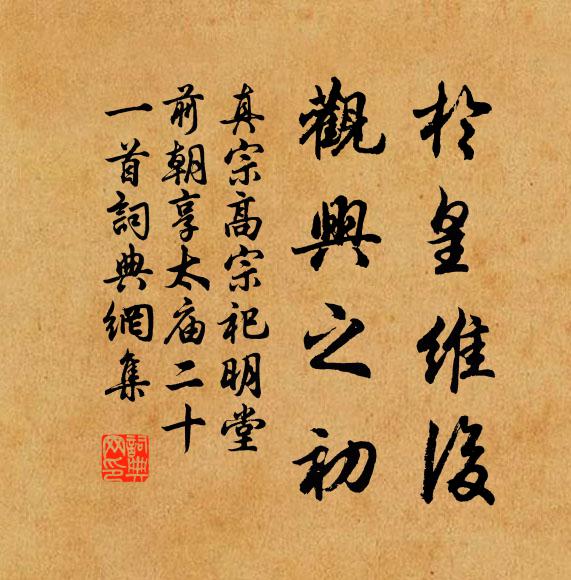 於皇維後
觀興之初
真宗高宗祀明堂
前朝享太庙二十
一首詞典網集